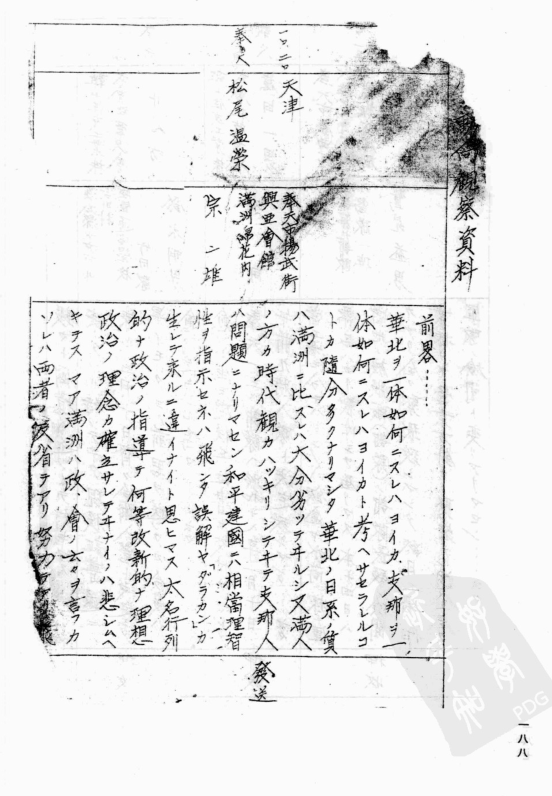 観察資料
一〇、二〇 天津
奉天 松尾温榮
奉天市揚武街
興亜會館
満洲綿花内
宗 二雄
前畧……
華北ヲ一体如何ニスレハヨイカ、支那ヲ一
体如何ニスレハヨイカト考ヘサセラレルコ
トカ隨分多クナリマシタ 華北ノ日系ノ質
ハ満洲ニ比スレハ大分劣ツテヰルシ又満人
ノ方カ時代観カハッキリシテヰテ支那人
ハ問題ニナリマセン 和平建國ニハ相當理智
性ヲ指示セネハ飛ンダ誤解ヤダラカンカ
生レテ來ルニ違イナイト思ヒマス 大名行列
的ナ政治ノ指導テ何等改新的ナ理想
政治ノ理念カ確立サレテヰナイノハ悲シムヘ
キテス マア満洲ハ政、會ノ云々ヲ言フカ
ソレハ両者ノ反省テアリ努力テ
發送
一八八
PDG